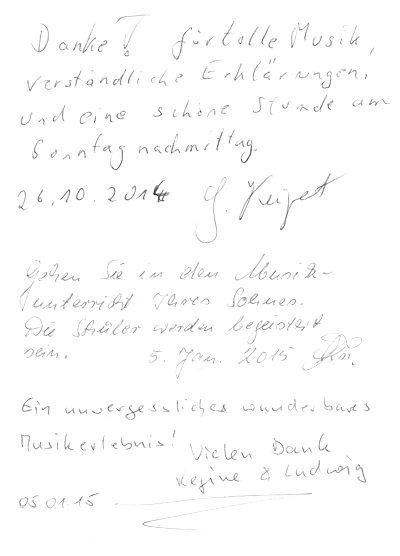 Danke! für tolle Musik,
verständliche Erklärungen,
und eine schöne Stunde am
Sonntag nachmittag.
26.10.2014 G.
Gehen Sie in den Musik-
unterricht Ihres Sohnes.
Die Schüler werden begeistert
sein. 5. Jan. 2015
Ein unvergessliches wunderbares
Musikerlebnis! Vielen Dank
Regine & Ludwig
05.01.15